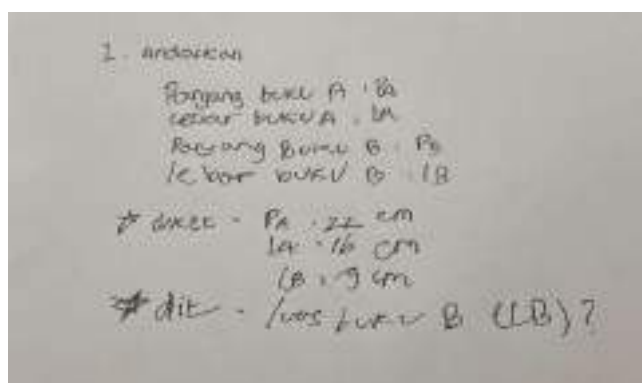 1. andaikan
Panjang buku A : PA
Lebar buku A : lA
Panjang Buku B : PB
lebar buku B : lB
* diket - PA : 22 cm
lA : 16 cm
lB : 9 cm
* dit - luas buku B (LB)?